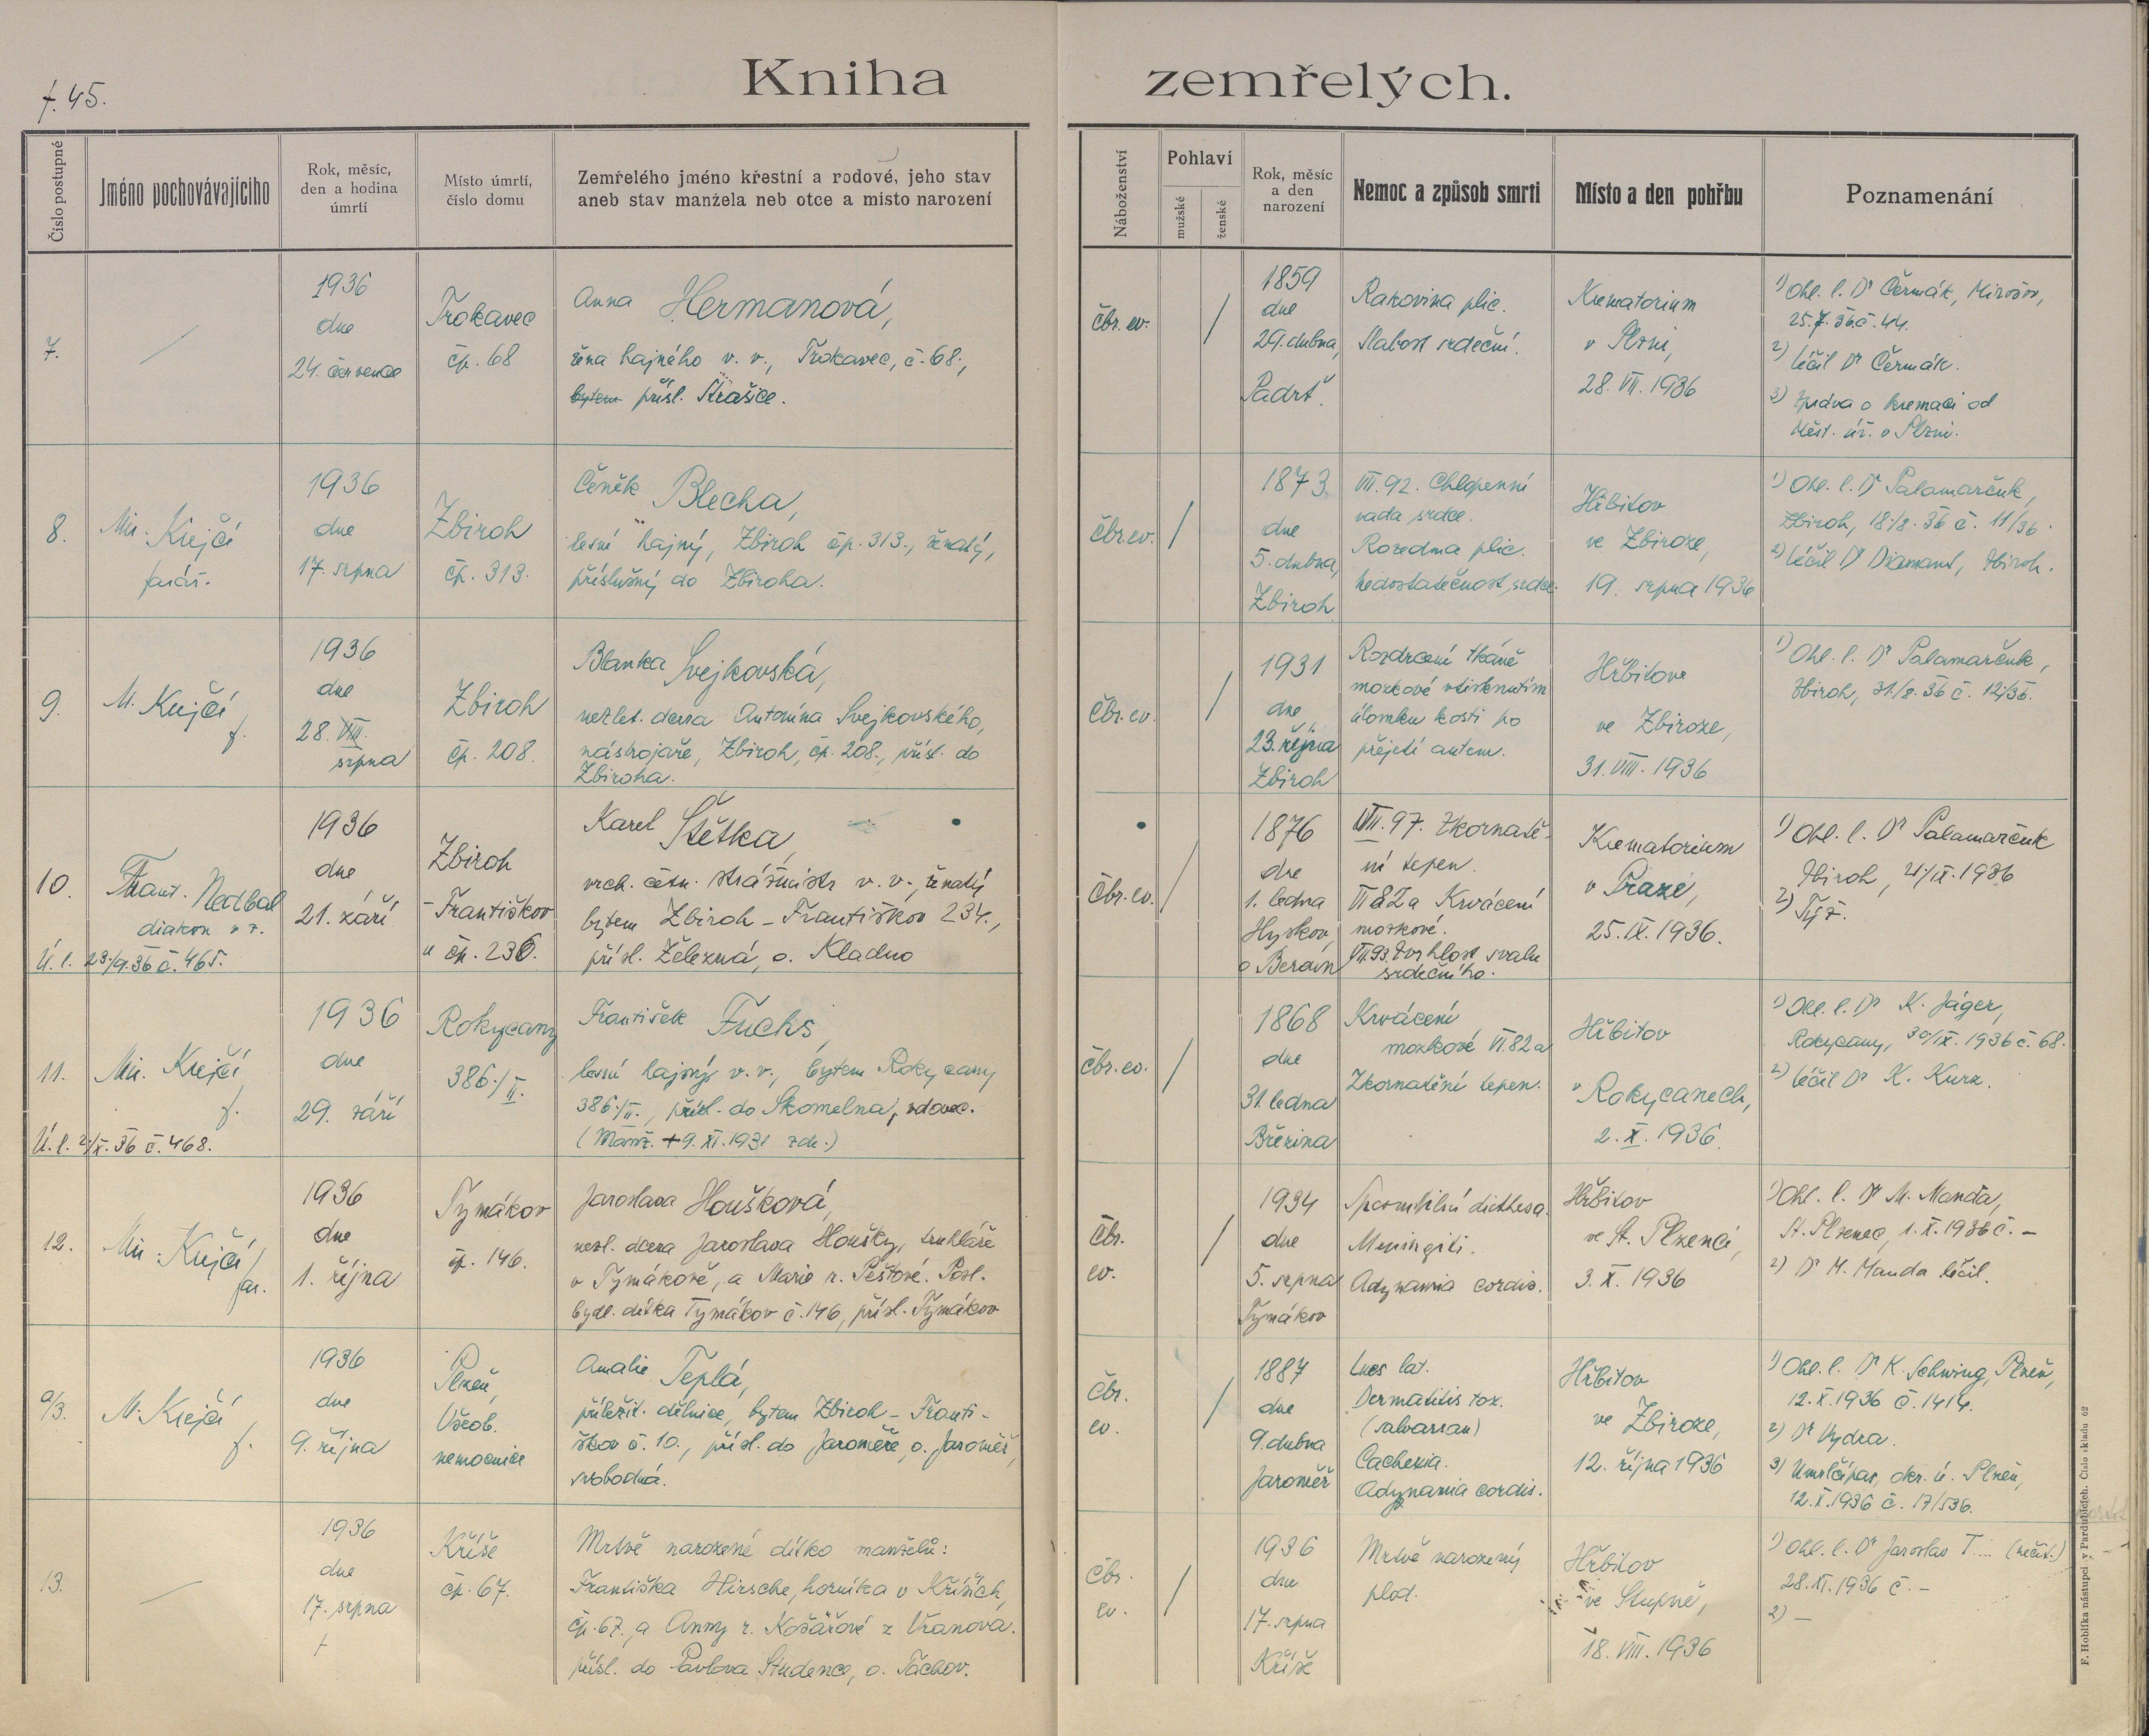 f. 45.
Kniha zemřelých.
Číslo postupné
Jméno pochovávajícího
Rok, měsíc,
den a hodina
úmrtí
Místo úmrtí,
číslo domu
Zemřelého jméno křestní a rodové, jeho stav
aneb stav manžela neb otce a místo narození
Náboženství
Pohlaví
mužské
ženské
Rok, měsíc
a den
narození
Nemoc a způsob smrti
Místo a den pohřbu
Poznamenání
7.
1936
dne
24. července
Trokavec
čp. 68
Anna Hermanová,
žena hajného v. v., Trokavec, č. 68.,
bytem přísl. Strašice.
čbr. ev.
1859
dne
29. dubna,
Padrť.
Rakovina plic.
Slabost srdeční.
Krematorium
v Plzni,
28. VII. 1936
1) Ohl. l. Dr Čermák, Mirošov,
25.7.36 č. 44.
2) léčil Dr Čermák.
3) Zpráva o kremaci od
Měst. úř. v Plzni.
8.
Mir. Krejčí
farář.
1936
dne
17. srpna
Zbiroh
čp. 313.
Čeněk Blecha,
lesní hajný, Zbiroh čp. 313., ženatý,
příslušný do Zbiroha.
čbr. ev.
1873.
dne
5. dubna,
Zbiroh
VII. 92. Chlopenní
vada srdce.
Rozedma plic.
nedostatečnost srdce.
Hřbitov
ve Zbiroze,
19. srpna 1936
1) Ohl. l. Dr Palamarčuk,
Zbiroh, 18./8. 36 č. 11/36.
2) léčil Dr Diamant, Zbiroh.
9.
M. Krejčí
f.
1936
dne
28. VIII.
srpna
Zbiroh
čp. 208.
Blanka Svejkovská,
nezlet. dcera Antonína Svejkovského,
nástrojaře, Zbiroh, čp. 208., přísl. do
Zbiroha.
čbr. ev.
1931
dne
23. října
Zbiroh
Rozdrcení tkáně
mozkové vtisknutím
úlomku kosti po
přejetí autem.
Hřbitove
ve Zbiroze,
31. VIII. 1936
1) Ohl. l. Dr Palamarčuk,
Zbiroh, 31./8. 36 č. 12/36.
10.
Frant. Nedbal
diakon v. v.
Ú. l. 23./9. 36 č. 465.
1936
dne
21. září
Zbiroh
-Františkov
u čp. 236.
Karel Štětka,
vrch. četn. strážmistr v. v., ženatý
bytem Zbiroh - Františkov 234.,
přísl. Železná, o. Kladno
Čbr. ev.
1876
dne
1. ledna
Hyskov,
o Beroun
VII. 97. Zkornatě-
ní tepen.
VI 82a Krvácení
mozkové.
VII. 93. Ztvrhlost svalu
srdečního.
Krematorium
v Praze,
25. IX. 1936.
1) Ohl. l. Dr Palamarčuk
Zbiroh, 21/IX. 1936
2) Týž.
11.
Mir. Krejčí
f.
Ú. l. 2/X. 36 č. 468.
1936
dne
29. září
Rokycany
386./II.
František Fuchs,
lesní hajný v. v., bytem Rokycany
386./II., přísl. do Skomelna, vdovec.
(Manž. +9. XI. 1931 zde.)
čbr. ev.
1868
dne
31. ledna
Březina
Krvácení
mozkové VI. 82a
Zkornatění tepen.
Hřbitov
v Rokycanech,
2. X. 1936.
1) Ohl. l. Dr K. Jäger,
Rokycany, 30/IX. 1936 č. 68.
2) léčil Dr K. Kurz.
12.
Mir. Krejčí
far.
1936
dne
1. října
Tymákov
čp. 146.
Jaroslava Houšková,
nezl. dcera Jaroslava Houšky, truhláře
v Tymákově, a Marie r. Peštové. Posl.
bydl. dítka Tymákov č. 146, přísl. Tymákov
Čbr.
ev.
1934
dne
5. srpna
Tymákov
diathesa.
Meningiti.
Adynamia cordis.
Hřbitov
ve St. Plzenci,
3. X. 1936
1) Ohl. l. Dr M. Manďa,
St. Plzenec, 1. X. 1936 č. -
2) Dr M. Manda léčil.
a/3.
M. Krejčí
f.
1936
dne
9. října
Plzeň,
Všeob.
nemocnice
Amalie Teplá,
příležit. dělnice, bytem Zbiroh - Franti-
škov č. 10., přísl. do Jaroměře, o. Jaroměř,
svobodná.
čbr.
ev.
1887
dne
9. dubna
Jaroměř
Lues lat.
Dermatitis tox.
(salvarsan)
Cachexia.
Adynamia cordis.
Hřbitov
ve Zbiroze,
12. října 1936
1) Ohl. l. Dr K. Schwing, Plzeň,
12. X. 1936 č. 1414.
2) Dr Vydra.
3) Umrlčí pas, okr. ú. Plzeň,
12. X. 1936 č. 17/536.
13.
1936
dne
17. srpna
+
Kříše
čp. 67.
Mrtvě narozené dítko manželů:
Františka Hirsche, horníka v Kříších,
čp. 67., a Anny r. Košařové z Vranova.
přísl. do Pavlova Studence, o. Tachov.
čbr.
ev.
1936
dne
17. srpna
Kříše
Mrtvě narozený
plod.
Hřbitov
ve Stupně,
18. VIII. 1936
1) Ohl. l. Dr Jaroslav T.... (nečit.)
28. XI. 1936 č. -
2) -
F. Hoblíka nástupci v Pardubicích. Číslo skladu 62